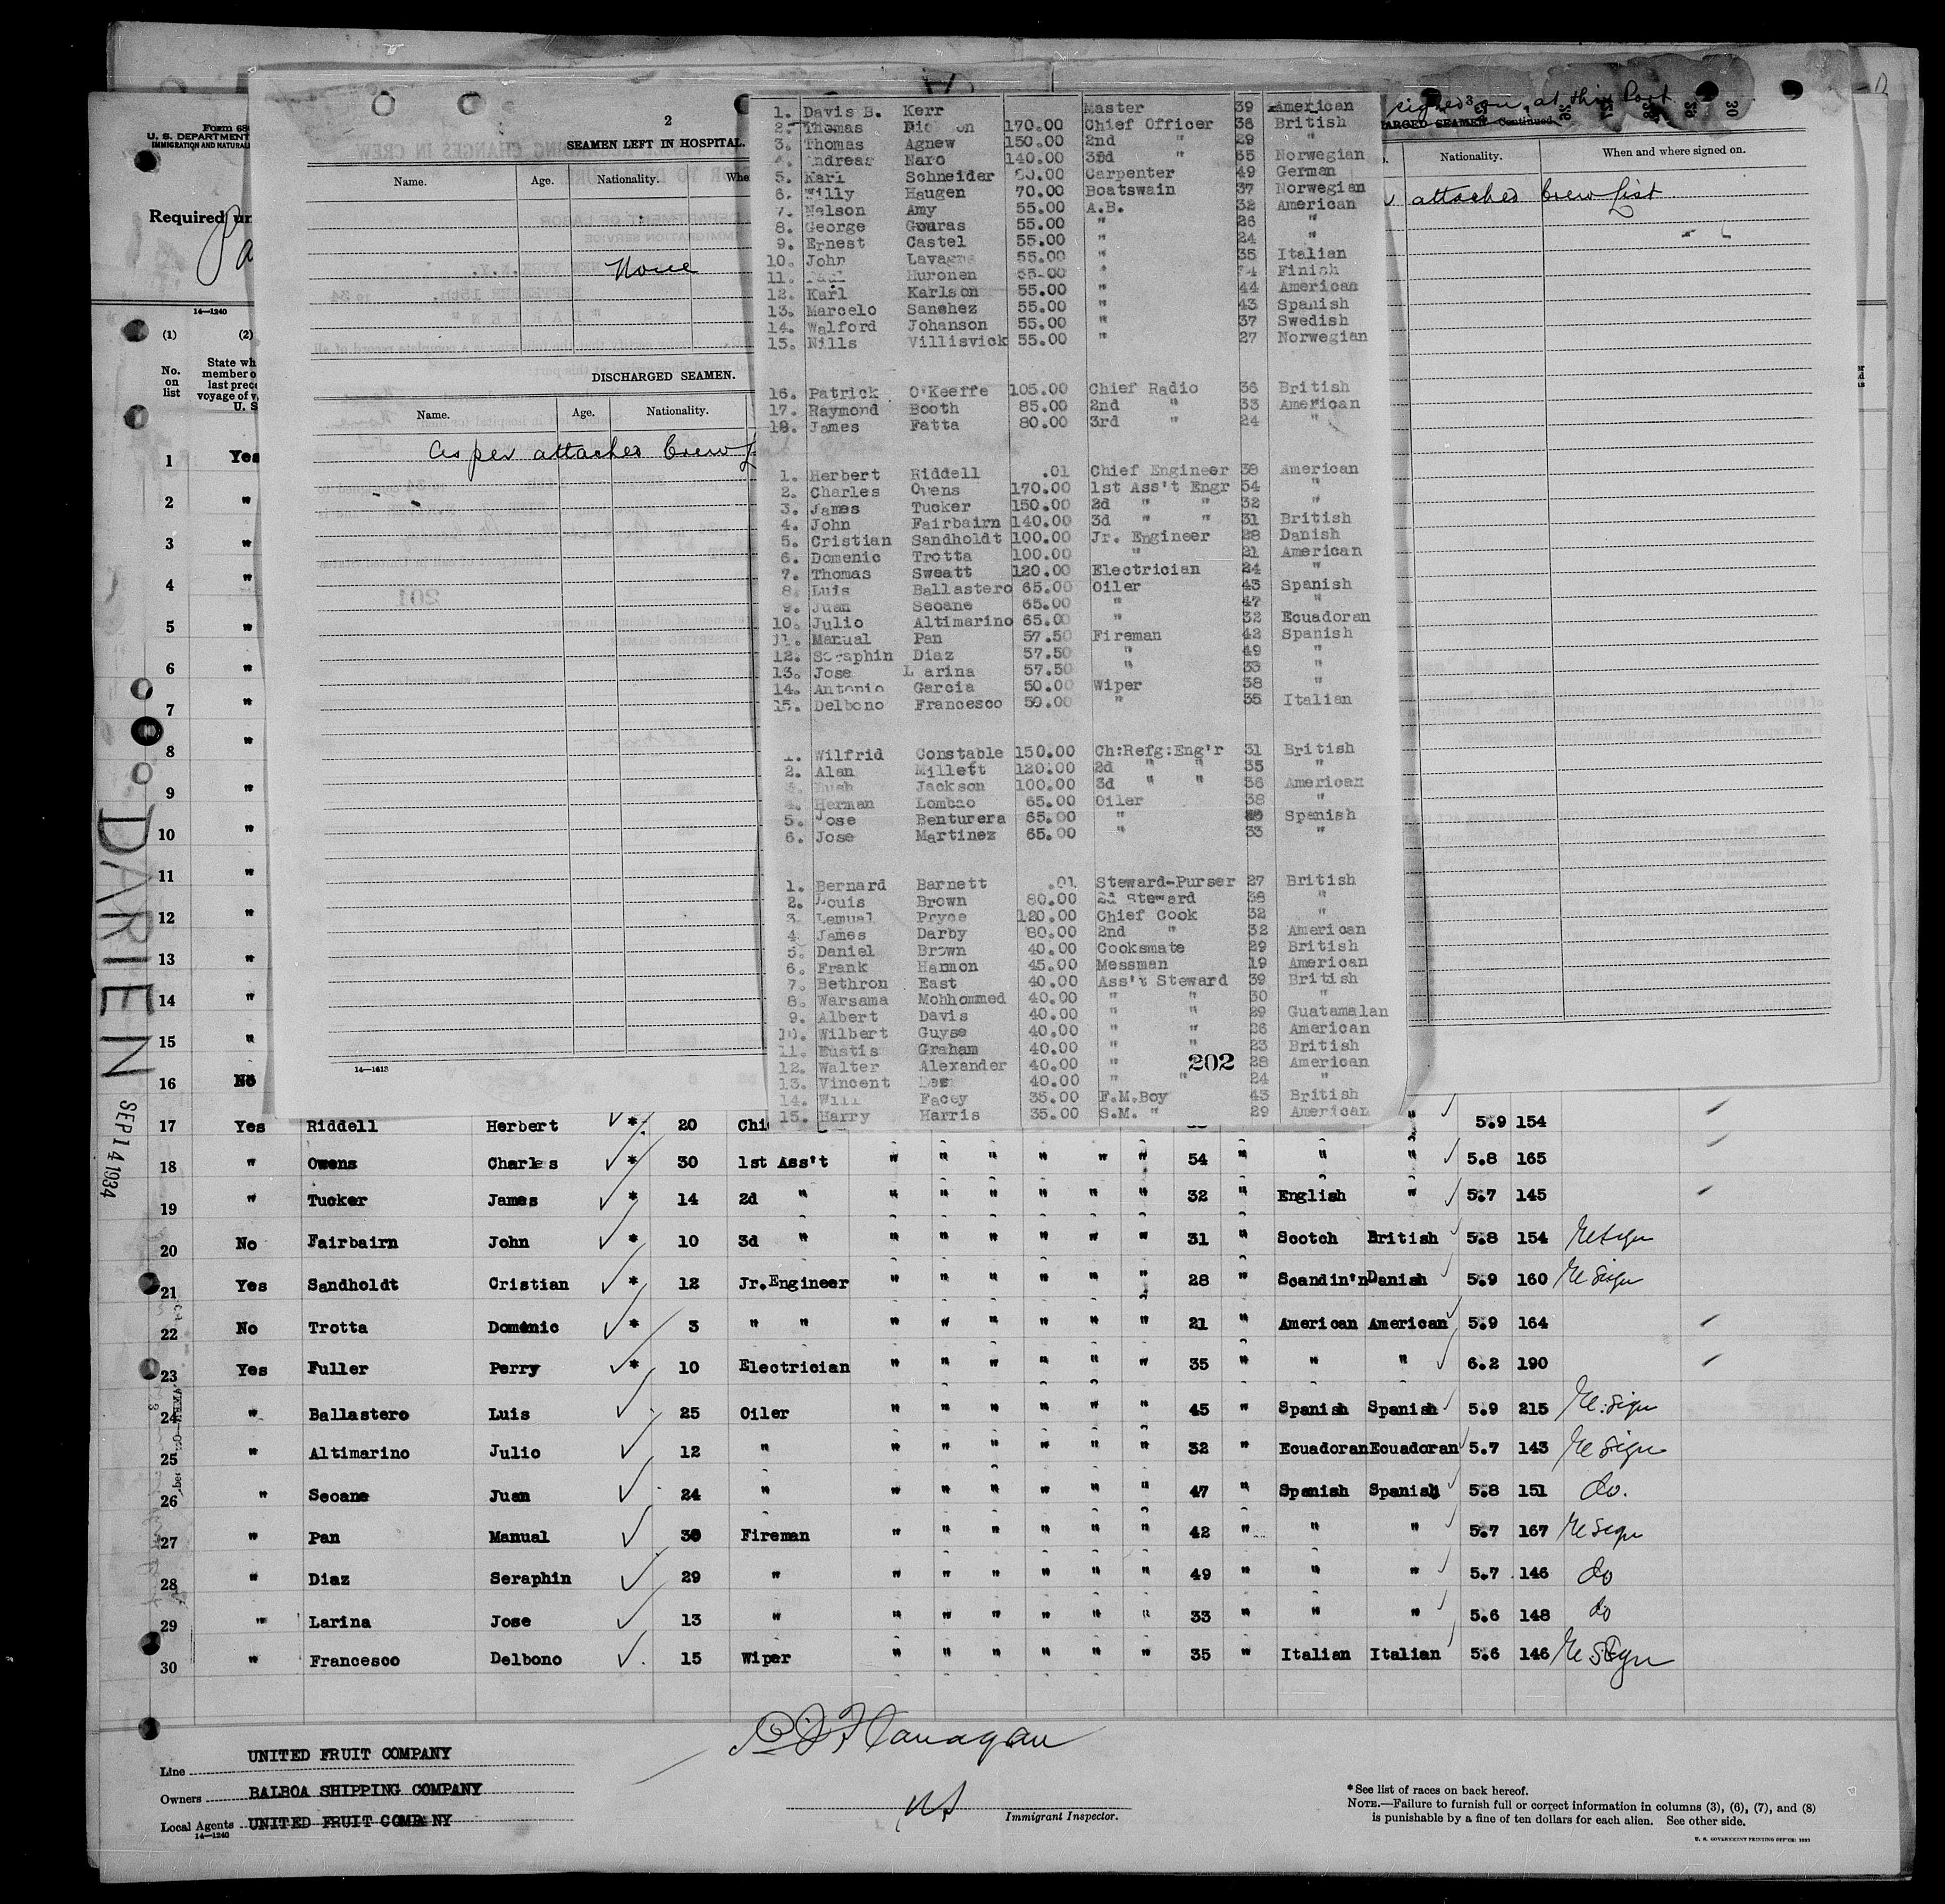 Form 680
U. S. DEPARTMENT
IMMIGRATION AND NATURAL
Required un
14—1240
(1) (2)
No. on list
State wh
member o
last prece
voyage of v
U. S
2
SEAMEN LEFT IN HOSPITAL.
Name. Age. Nationality. Whe
None
DISCHARGED SEAMEN.
Name. Age. Nationality.
As per attached Crew L
14—1613
signed on at this Port
ARGED SEAMEN—Continued
Nationality. When and where signed on.
attached Crew List
1. Davis B. Kerr Master 39 American
2. Thomas 170.00 Chief Officer 36 British
3. Thomas Agnew 150.00 2nd " 29 "
4. Andreas Naro 140.00 3rd " 65 Norwegian
5. Karl Schneider 80.00 Carpenter 49 German
6. Willy Haugen 70.00 Boatswain 37 Norwegian
7. Nelson Amy 55.00 A.B. 32 American
8. George Gouras 55.00 " 26 "
9. Ernest Castel 55.00 " 24 "
10. John Lavagna 55.00 " 35 Italian
11. Huronen 55.00 " Finish
12. Karl Karlson 55.00 " 44 American
13. Marcelo Sanchez 55.00 " 43 Spanish
14. Walford Johanson 55.00 " 37 Swedish
15. Nills Villisvick 55.00 " 27 Norwegian
16. Patrick O'Keeffe 105.00 Chief Radio 36 British
17. Raymond Booth 85.00 2nd " 33 American
18. James Fatta 80.00 3rd " 24 "
1. Herbert Riddell .01 Chief Engineer 38 American
2. Charles Owens 170.00 1st Ass't Engr 54 "
3. James Tucker 150.00 2d " " 32 "
4. John Fairbairn 140.00 3d " " 31 British
5. Cristian Sandholdt 100.00 Jr. Engineer 28 Danish
6. Domenic Trotta 100.00 " 21 American
7. Thomas Sweatt 120.00 Electrician 24 "
8. Luis Ballastero 65.00 Oiler 45 Spanish
9. Juan Seoane 65.00 " 47 "
10. Julio Altimarino 65.00 " 32 Ecuadoran
11. Manual Pan 57.50 Fireman 42 Spanish
12. Seraphin Diaz 57.50 " 49 "
13. Jose Larina 57.50 " 33 "
14. Antonio Garcia 50.00 Wiper 38 "
15. Delbono Francesco 50.00 " 35 Italian
1. Wilfrid Constable 150.00 Ch:Refg:Eng'r 31 British
2. Alan Millett 120.00 2d " " 35 "
3. Hugh Jackson 100.00 3d " " 36 American
4. Herman Lombao 65.00 Oiler 38 "
5. Jose Benturera 65.00 " Spanish
6. Jose Martinez 65.00 " 33 "
1. Bernard Barnett .01 Steward-Purser 27 British
2. Louis Brown 80.00 2d Steward 38 "
3. Lemual Pryce 120.00 Chief Cook 32 "
4. James Darby 80.00 2nd " 32 American
5. Daniel Brown 40.00 Cooksmate 29 British
6. Frank Harmon 45.00 Messman 19 American
7. Bethron East 40.00 Ass't Steward 39 British
8. Warsama Mohhommed 40.00 " " 30 "
9. Albert Davis 40.00 " " 29 Guatamalan
10. Wilbert Guyse 40.00 " " 26 American
11. Eustis Graham 40.00 " " 23 British
12. Walter Alexander 40.00 " 28 American
13. Vincent 40.00 " " 24 "
14. Will Facey 35.00 F.M.Boy 43 British
15. Harry Harris 35.00 S.M. " 29 American
202
DARIEN
SEP 14 1934
1 Yes
2 "
3 "
4 "
5 "
6 "
7 "
8 "
9 "
10 "
11 "
12 "
13 "
14 "
15 "
16 No
17 Yes Riddell Herbert * 20 Chi " 5.9 154
18 " Owens Charles * 30 1st Ass't " " " " " " 54 " " " 5.8 165
19 " Tucker James * 14 2d " " " " " " " 32 " English " 5.7 145
20 No Fairbairn John * 10 3d " " " " " " " 31 " Scotch British 5.8 154 Resign
21 Yes Sandholdt Cristian * 12 Jr.Engineer " " " " " " 28 " Scandin'n Danish 5.9 160 Resign
22 No Trotta Domenic * 3 " " " " " " " " 21 " American American 5.9 164
23 Yes Fuller Perry * 10 Electrician " " " " " " 35 " " " 6.2 190
24 " Ballastero Luis 25 Oiler " " " " " " 45 " Spanish Spanish 5.9 215 Resign
25 " Altimarino Julio 12 " " " " " " " 32 " Ecuadoran Ecuadoran 5.7 143 Resign
26 " Seoane Juan 24 " " " " " " " 47 " Spanish Spanish 5.8 151 do.
27 " Pan Manual 30 Fireman " " " " " " 42 " " " 5.7 167 Resign
28 " Diaz Seraphin 29 " " " " " " " 49 " " " 5.7 146 do
29 " Larina Jose 13 " " " " " " " 33 " " " 5.6 148 do
30 " Francesco Delbono 15 Wiper " " " " " " 35 " Italian Italian 5.6 146 Resign
Line UNITED FRUIT COMPANY
Owners BALBOA SHIPPING COMPANY
Local Agents UNITED FRUIT COMPANY
14—1240
Flanagan
Immigrant Inspector.
*See list of races on back hereof.
NOTE.—Failure to furnish full or correct information in columns (3), (6), (7), and (8)
is punishable by a fine of ten dollars for each alien. See other side.
U. S. GOVERNMENT PRINTING OFFICE: 1933